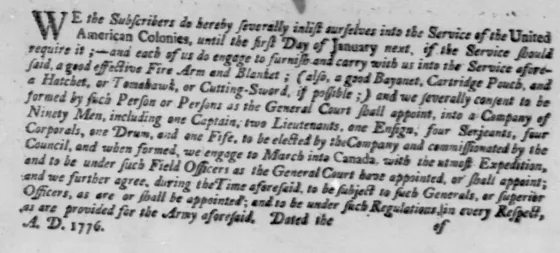 WE the Subscribers do hereby severally inlist ourselves into the Service of the United
American Colonies, until the first Day of January next, if the Service should
require it ;—and each of us do engage to furnish and carry with us into the Service afore-
said, a good effective Fire Arm and Blanket ; (also, a good Bayonet, Cartridge Pouch, and
a Hatchet, or Tomahawk, or Cutting-Sword, if possible ;) and we severally consent to be
formed by such Person or Persons as the General Court shall appoint, into a Company of
Ninety Men, including one Captain, two Lieutenants, one Ensign, four Serjeants, four
Corporals, one Drum, and one Fife, to be elected by the Company and commissionated by the
Council, and when formed, we engage to March into Canada, with the utmost Expedition,
and to be under such Field Officers as the General Court have appointed, or shall appoint;
and we further agree, during the Time aforesaid, to be subject to such Generals, or superior
Officers, as are or shall be appointed; and to be under such Regulations, in every Respect,
as are provided for the Army aforesaid. Dated the of
A. D. 1776.